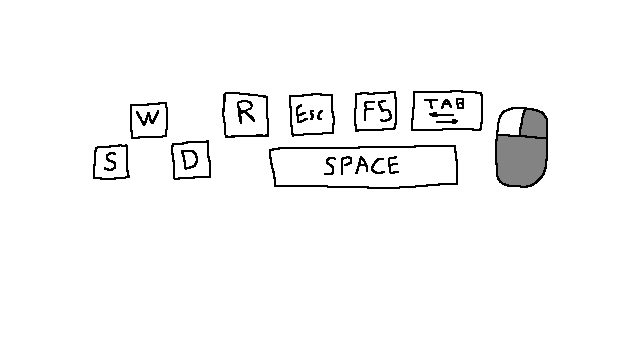 W R Esc F5 TAB
S D SPACE